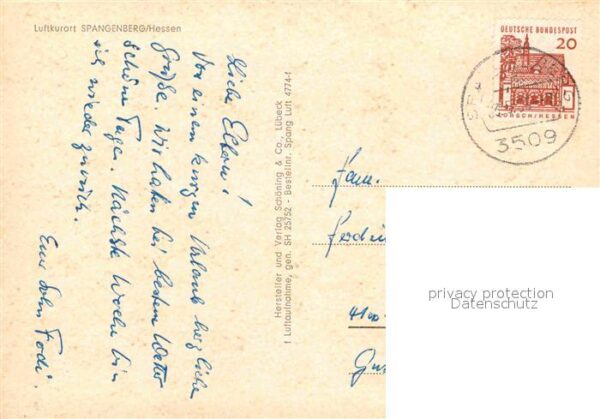 Luftkurort SPANGENBERG/Hessen
Liebe Eltern!
Von einem kurzen Urlaub herzliche
Grüße. Wir haben bei bestem Wetter
schöne Tage. Nächste Woche bin
ich wieder zurück.
Euer Sohn Ferdi.
Hersteller und Verlag Schöning & Co., Lübeck
† Luftaufnahme, gen. SH 25/52 - Bestellnr. Spang Luft 4774 f
DEUTSCHE BUNDESPOST
20
LORSCH/HESSEN
3509
Fam.
Ferdin
4100
privacy protection
Datenschutz